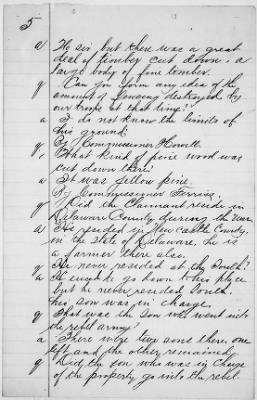 5
a No sir, but there was a great
deal of timber cut down, a
large body of pine timber.
q Can you form any idea of the
amount of fencing destroyed by
our troops at that time?
a I do not know the limits of
his ground.
By Commissioner Howell.
q What kind of pine wood was
cut down there?
a It was yellow pine.
By Commissioner Ferriss.
q Did the Claimant reside in
Delaware County during the war
a He resided in New Castle County
in the State of Delaware, he is
a farmer there also.
q He never resided at the South?
a He used to go down to this place
but he never resided South.
his son was in charge.
q That was the son who went into
the rebel army?
a There were two sons there, one
left and the other remained
q Did the son who was in charge
of the property go into the rebel